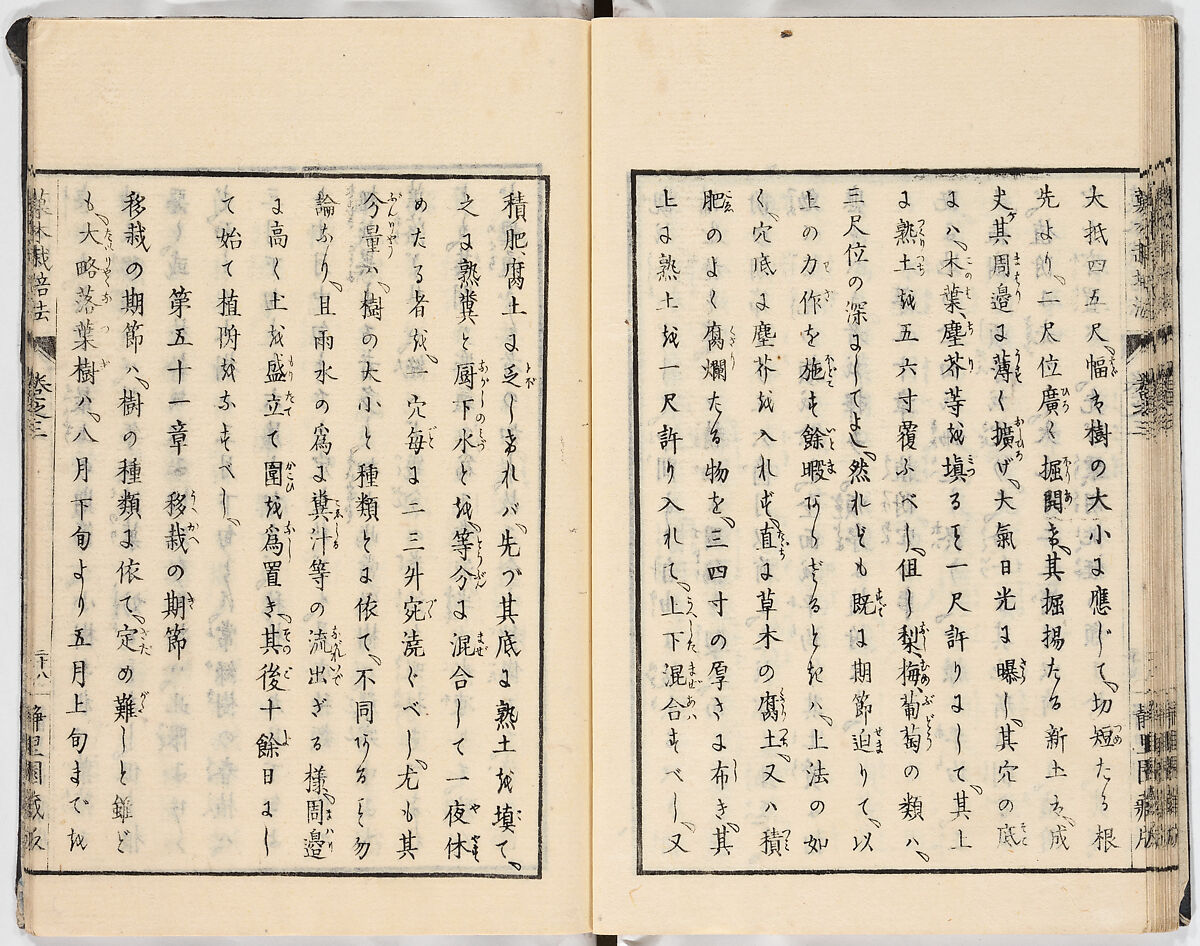 大抵四五尺、幅ハ樹の大小に應じて、切短たる根
先より、二尺位廣く掘開き、其掘揚たる新土ハ、成
丈其周邊に薄く擴げ、大氣日光に曝し、其穴の底
にハ、木葉、塵芥等を塡ること一尺許りにして、其上
に熟土を五六寸覆ふべし、但し梨、梅、葡萄の類ハ、
三尺位の深にしてよし、然れども既に期節迫りて、以
上の力作を施す餘暇あらざるときハ、上法の如
く、穴底に塵芥を入れず、直に草木の腐土、又ハ積
肥のよく腐爛たる物を、三四寸の厚さに布き、其
上に熟土を一尺許り入れて、上下混合すべし、又
積肥、腐土に乏しけれバ、先づ其底に熟土を塡て、
之に熟糞と厨下水とを、等分に混合して一夜休
めたる者を、一穴毎に二三升宛澆ぐべし、尤も其
分量ハ、樹の大小と種類とに依て、不同あること勿
論なり、且雨水の爲に糞汁等の流出ざる樣、周邊
に高く土を盛立て圍を爲置き、其後十餘日にし
て始て植附をなすべし、
第五十一章 移栽の期節
移栽の期節ハ、樹の種類に依て、定め難しと雖ど
も、大略落葉樹ハ、八月下旬より五月上旬までを
菓木栽培法 卷之三 二十八 靜里園藏版